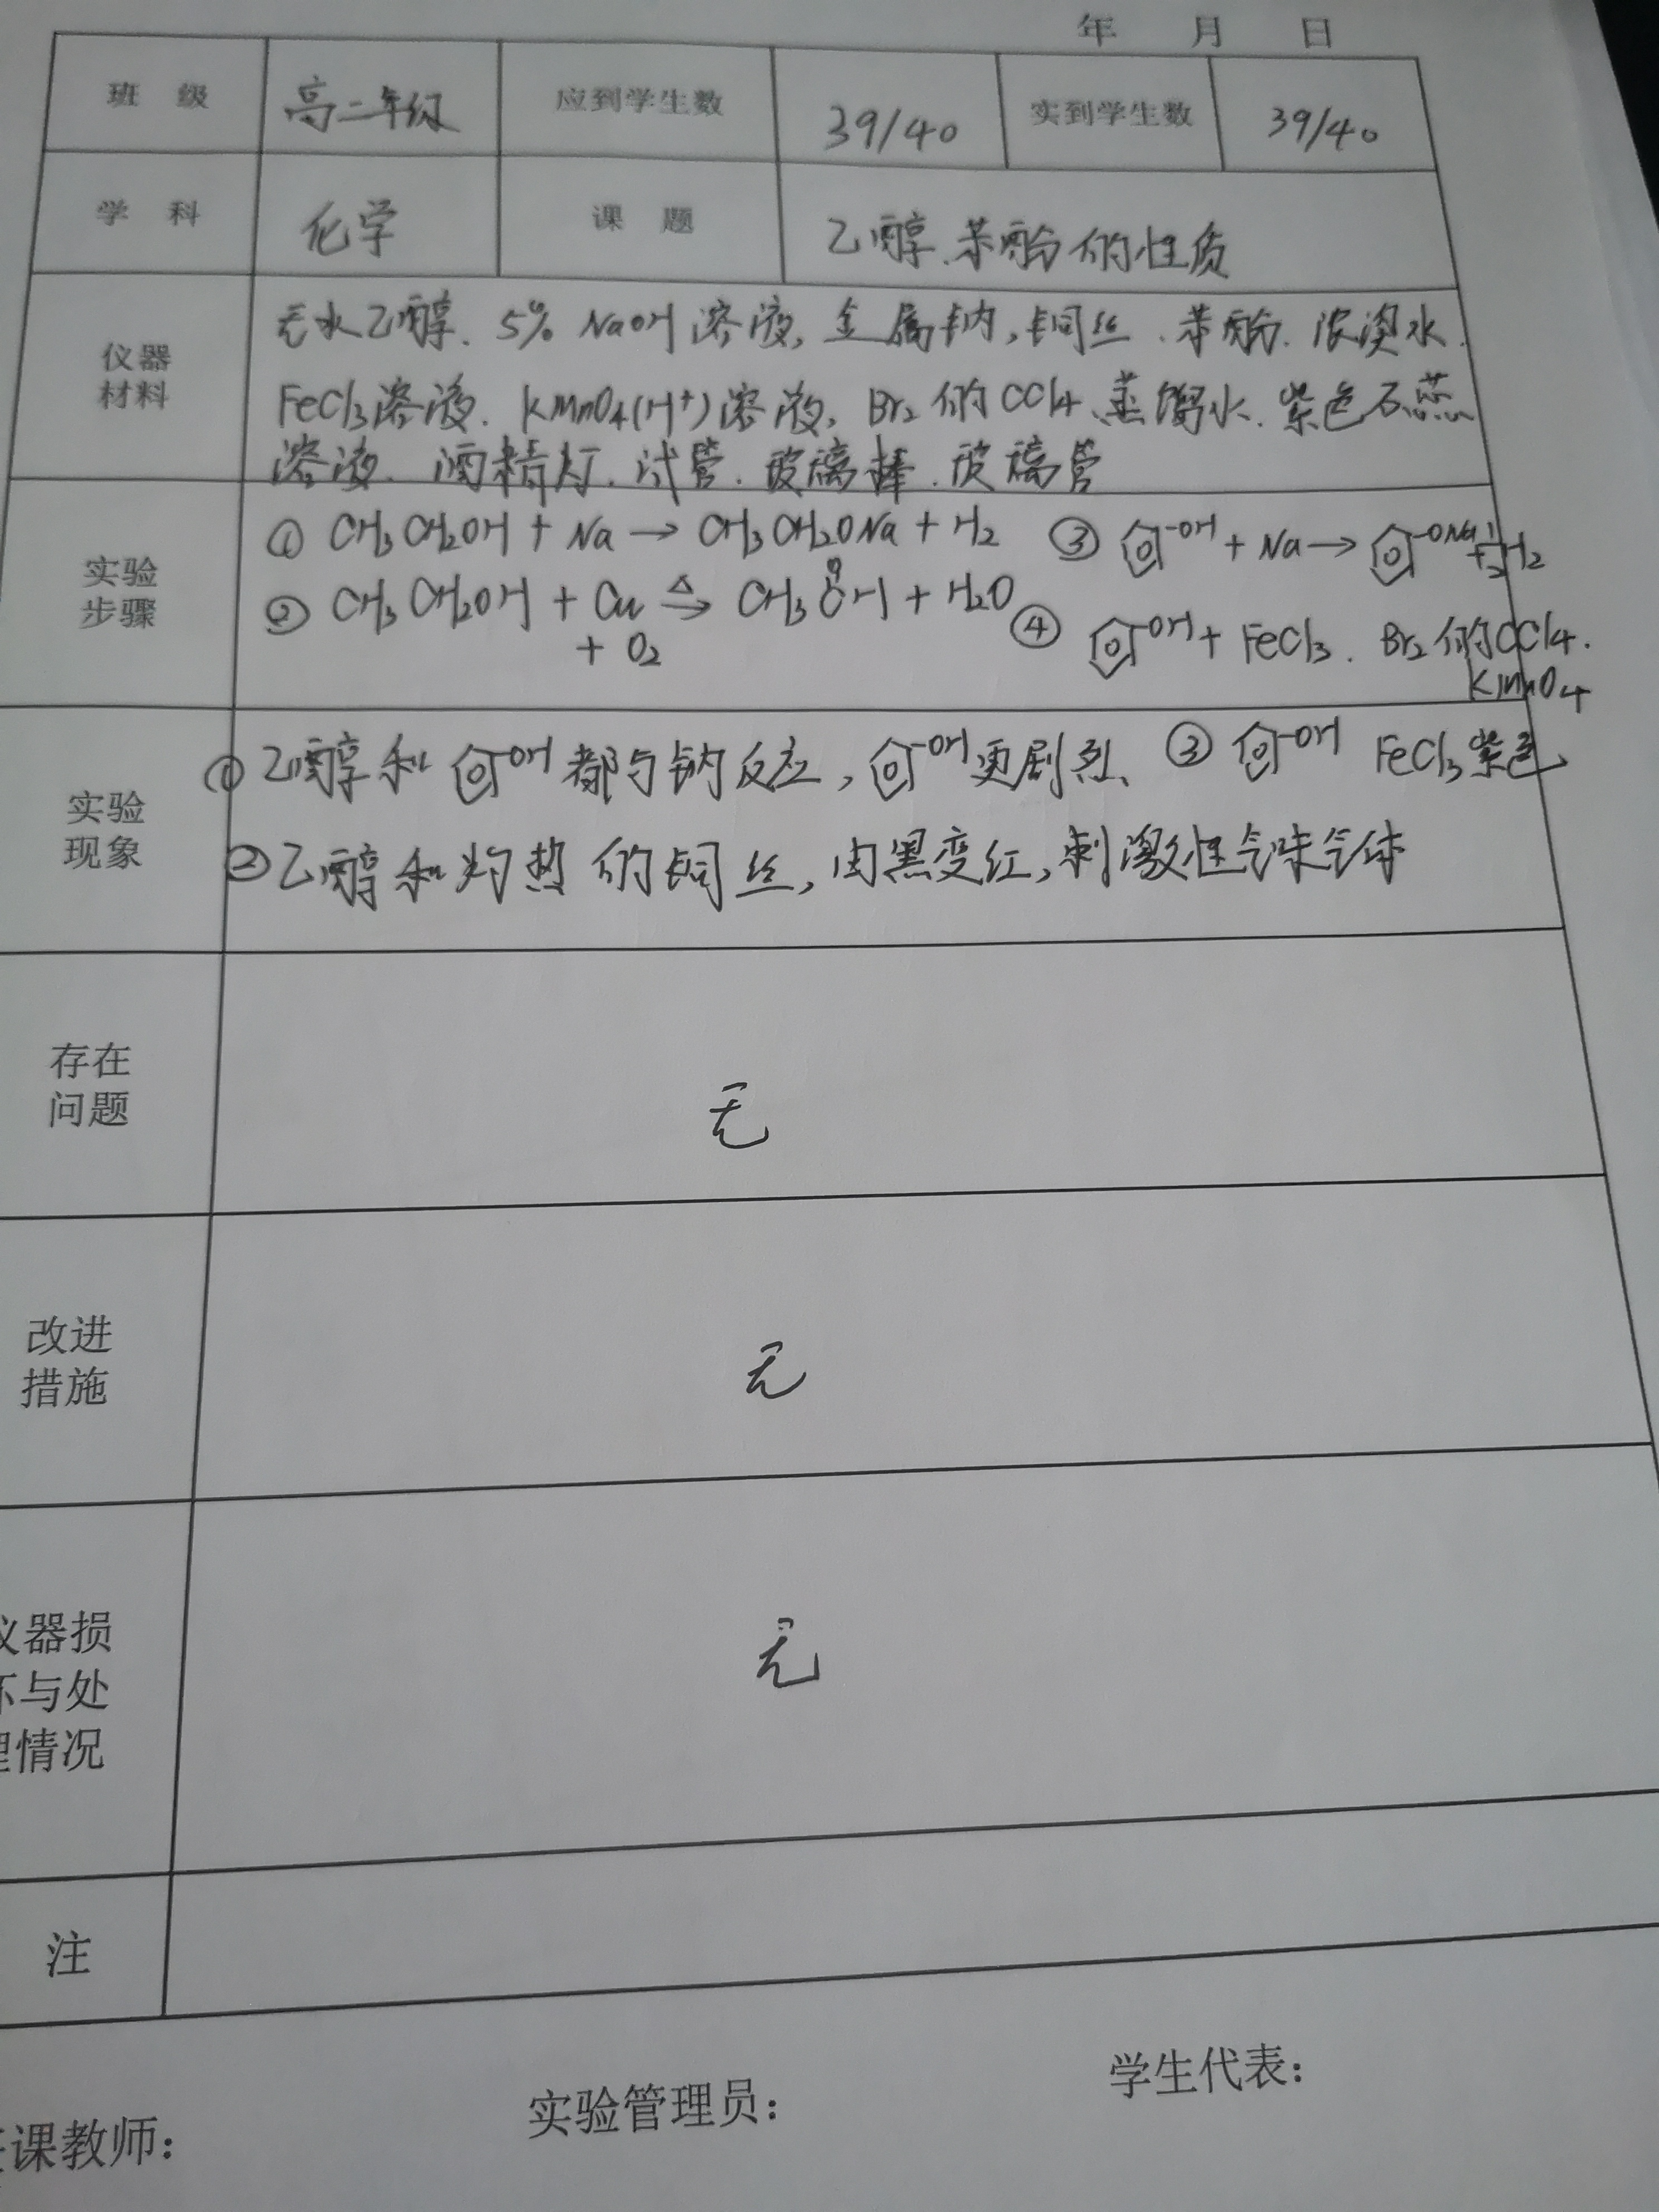 年 月 日
班 级 高二年级 应到学生数 39/40 实到学生数 39/40
学 科 化学 课 题 乙醇、苯酚的性质
仪器
材料
无水乙醇、5% NaOH溶液，金属钠，铜丝、苯酚、浓溴水、
FeCl3溶液、KMnO4(H+)溶液，Br2的CCl4、蒸馏水、紫色石蕊
溶液、酒精灯、试管、玻璃棒、玻璃管
实验
步骤
① CH3CH2OH + Na → CH3CH2ONa + H2 ③ -OH + Na → -ONa + 1/2 H2
② CH3CH2OH + Cu △→ CH3CH + H2O
O
+ O2
④ -OH + FeCl3、Br2的CCl4、
KMnO4
实验
现象
① 乙醇和 -OH 都与钠反应，-OH更剧烈、 ③ -OH FeCl3紫色
② 乙醇和灼热的铜丝，由黑变红，刺激性气味气体
存在
问题
无
改进
措施
无
仪器损
坏与处
理情况
无
注
课教师：
实验管理员：
学生代表：